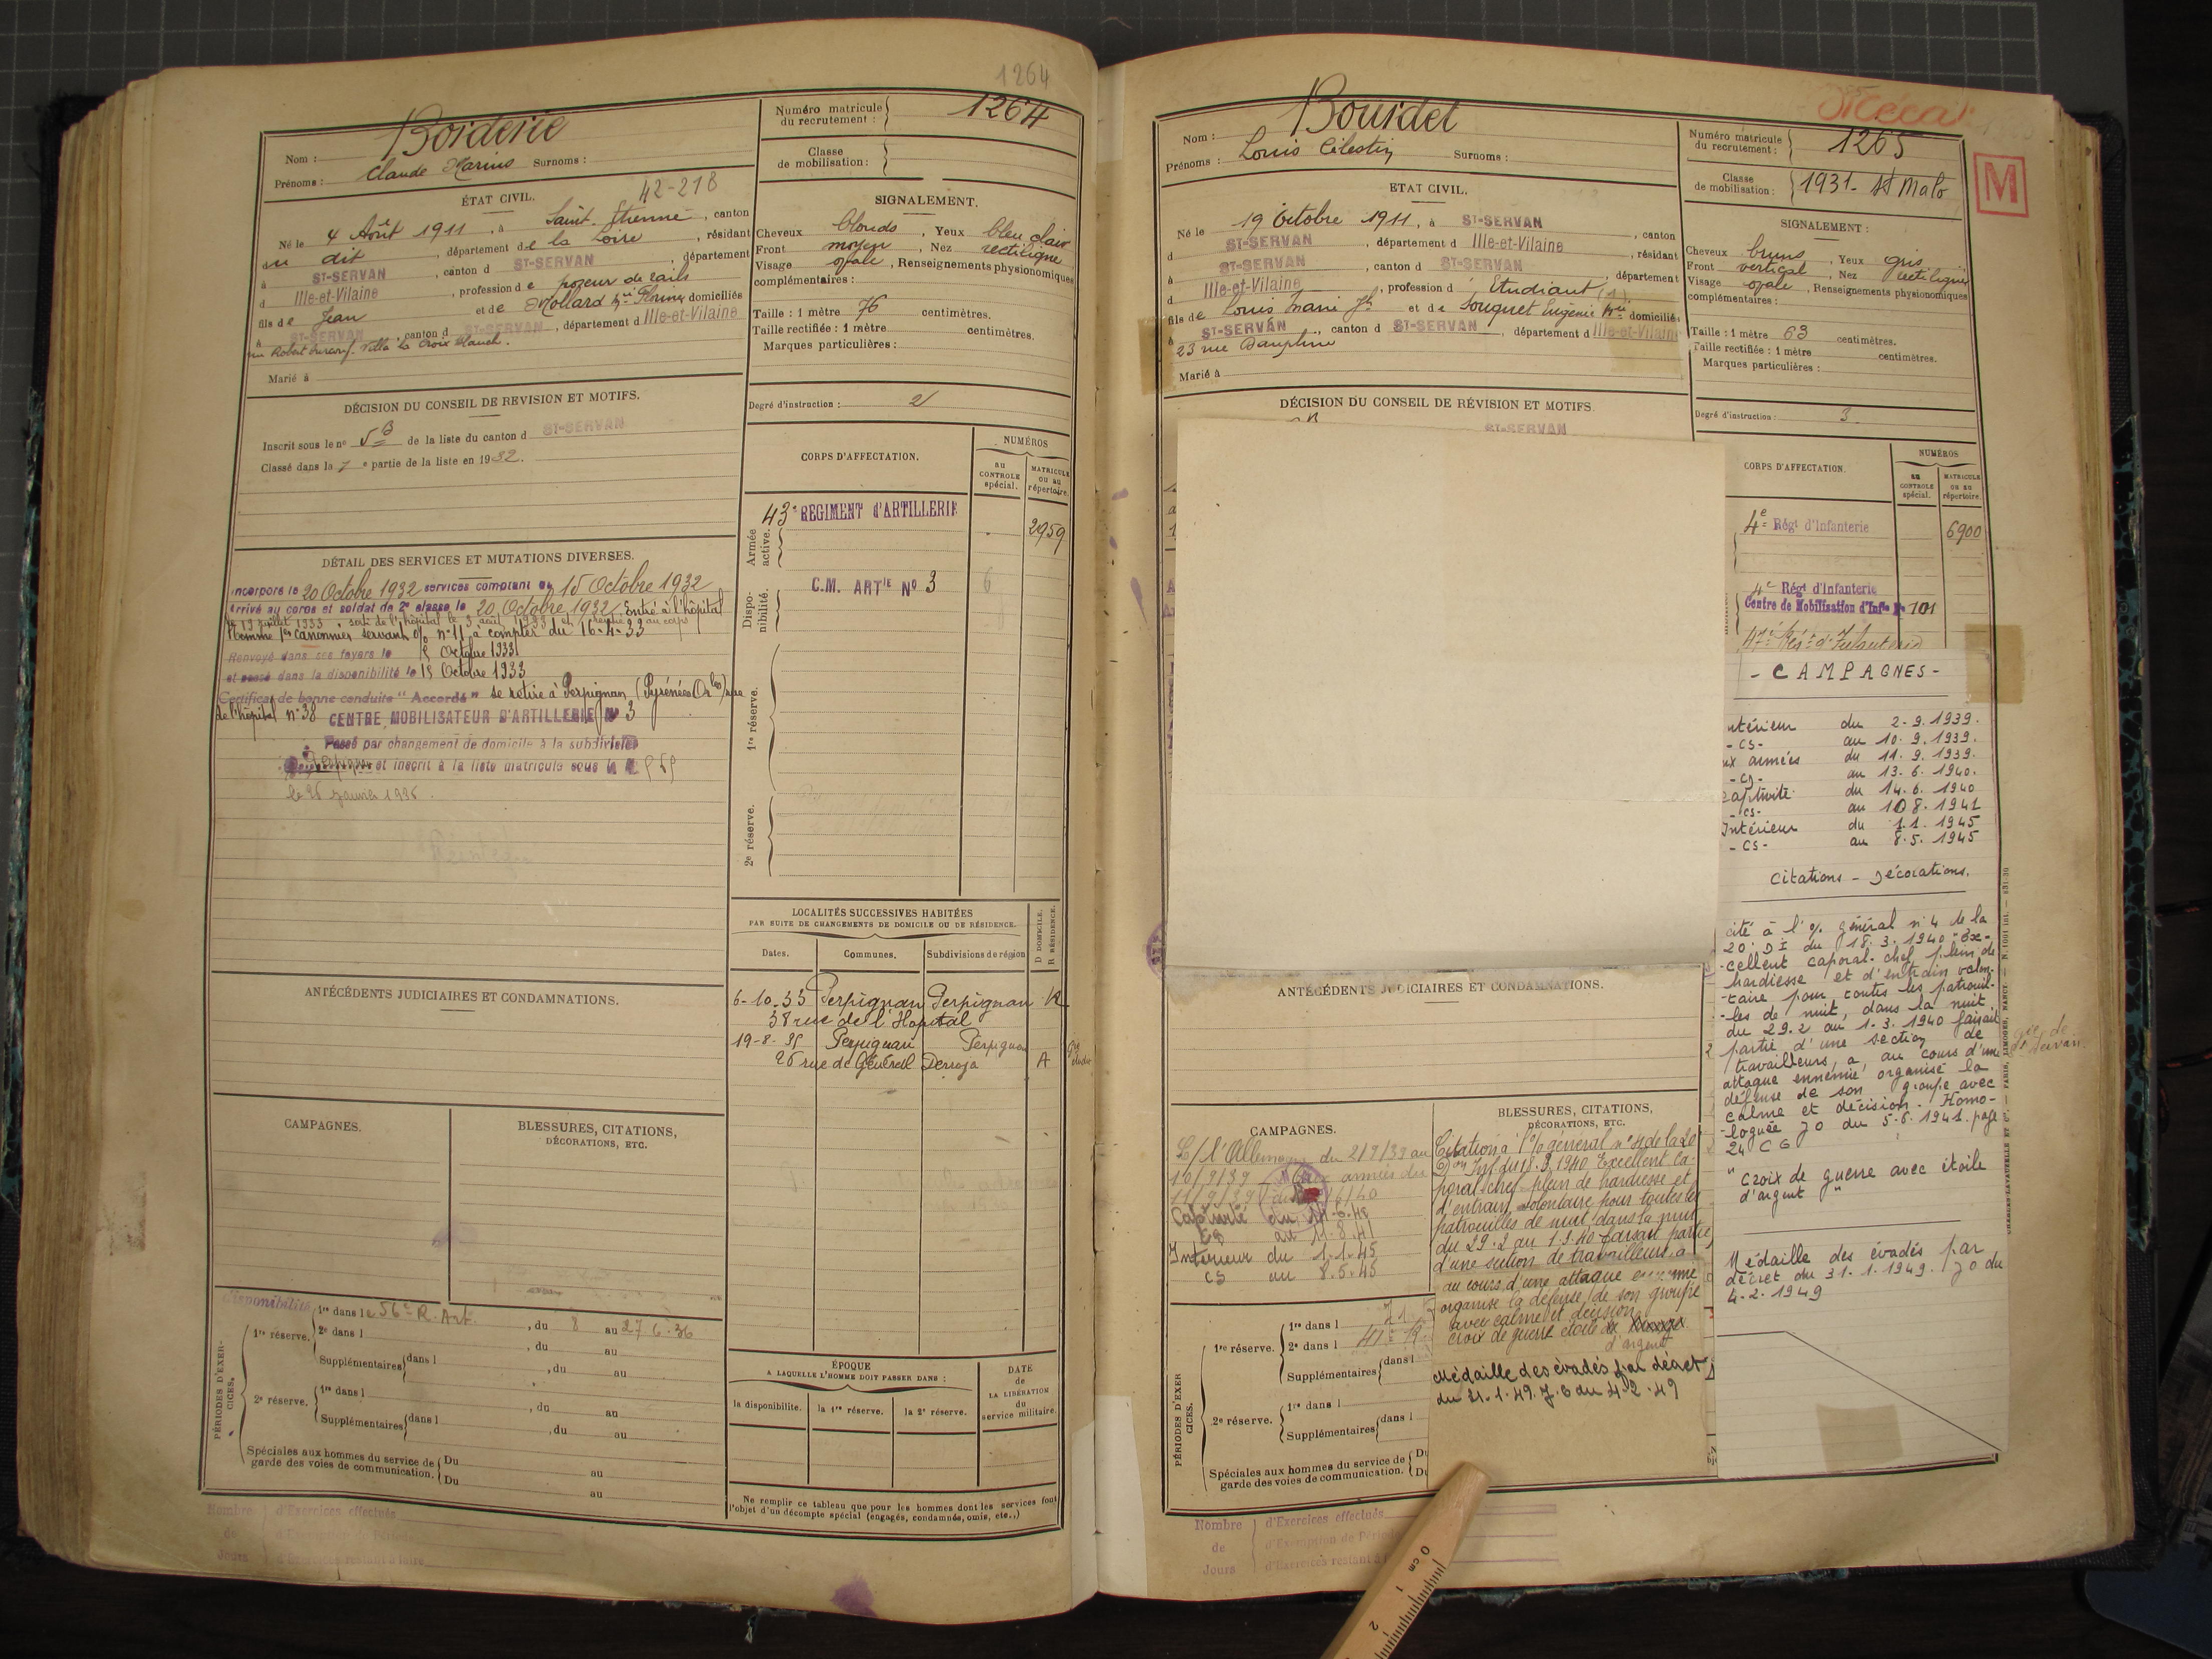 1264
Nom : Borderie
Prénoms : Claude Marius Surnoms :
Numéro matricule du recrutement : 1264
Classe de mobilisation :
ÉTAT CIVIL.
42-218
Né le 4 Août 1911, à Saint-Étienne, canton
du dit, département de la Loire, résidant
à ST-SERVAN, canton d ST-SERVAN, département
d Ille-et-Vilaine, profession de poseur de rails
fils de Jean et de Mollard domiciliés
à ST-SERVAN, canton d ST-SERVAN, département d Ille-et-Vilaine
Villa la Croix Blanche.
Marié à
SIGNALEMENT.
Cheveux blonds, Yeux bleu clair
Front moyen, Nez rectiligne
Visage ovale, Renseignements physionomiques
complémentaires :
Taille : 1 mètre 76 centimètres.
Taille rectifiée : 1 mètre centimètres.
Marques particulières :
Degré d'instruction : 2
DÉCISION DU CONSEIL DE REVISION ET MOTIFS.
Inscrit sous le no 5 B de la liste du canton d ST-SERVAN
Classé dans la 7e partie de la liste en 1932.
CORPS D'AFFECTATION.
NUMÉROS
AU CONTROLE spécial.
MATRICULE ou au répertoire.
Armée active.
43e REGIMENT d'ARTILLERIE 2959
Disponibilité.
C.M. ARTIE No 3
1re réserve.
2e réserve.
DÉTAIL DES SERVICES ET MUTATIONS DIVERSES.
Incorporé le 20 Octobre 1932 services comptant du 15 Octobre 1932
Arrivé au corps et soldat de 2e classe le 20 Octobre 1932 Entré à l'hôpital
le 19 juillet 1933 sorti de l'hôpital le 3 août 1933 et rentré au corps
Nommé 1er canonnier servant o/o no 11 à compter du 16-4-33
Renvoyé dans ses foyers le 15 Octobre 1933
et passé dans la disponibilité le 15 Octobre 1933
Certificat de bonne conduite "Accordé" se retire à Perpignan (Pyrénées Orles) rue
de l'hôpital no 38 CENTRE MOBILISATEUR D'ARTILLERIE No 3
Passé par changement de domicile à la subdivision
Perpignan et inscrit à la liste matricule sous le
le 26 janvier 1936.
LOCALITÉS SUCCESSIVES HABITÉES
PAR SUITE DE CHANGEMENTS DE DOMICILE OU DE RÉSIDENCE.
Dates. Communes. Subdivisions de région
D DOMICILE. R RÉSIDENCE.
6-10-33 Perpignan Perpignan R
38 rue de l'Hopital
19-8-35 Perpignan Perpignan
26 rue du Général Derroja A
ANTÉCÉDENTS JUDICIAIRES ET CONDAMNATIONS.
CAMPAGNES.
BLESSURES, CITATIONS,
DÉCORATIONS, ETC.
PÉRIODES D'EXERCICES.
Disponibilité
1re réserve.
1re dans le 56e R. Art., du 8 au 27 6-36
2e dans l , du au
Supplémentaires dans l , du au
2e réserve.
1re dans l , du au
Supplémentaires dans l , du au
Spéciales aux hommes du service de garde des voies de communication. Du au
Du au
ÉPOQUE
A LAQUELLE L'HOMME DOIT PASSER DANS :
la disponibilité. la 1re réserve. la 2e réserve.
DATE de LA LIBÉRATION du service militaire.
Ne remplir ce tableau que pour les hommes dont les services font
l'objet d'un décompte spécial (engagés, condamnés, omis, etc..)
Nombre de Jours
d'Exercices effectués
d'Exercices restant à faire
Nom : Bourdet
Prénoms : Louis Célestin Surnoms :
Numéro matricule du recrutement : 1265
Classe de mobilisation : 1931 - St Malo
M
ETAT CIVIL.
Né le 19 Octobre 1911, à ST-SERVAN, canton
d ST-SERVAN, département d Ille-et-Vilaine, résidant
à ST-SERVAN, canton d ST-SERVAN, département
d Ille-et-Vilaine, profession d Etudiant (1)
fils de Louis Marie Jh et de Souquet Eugénie domiciliés
à ST-SERVAN, canton d ST-SERVAN, département d Ille-et-Vilaine
23 rue Dauphine
Marié à
SIGNALEMENT :
Cheveux bruns, Yeux gris
Front vertical, Nez rectiligne
Visage ovale, Renseignements physionomiques
complémentaires :
Taille : 1 mètre 63 centimètres.
Taille rectifiée : 1 mètre centimètres.
Marques particulières :
Degré d'instruction : 3
DÉCISION DU CONSEIL DE RÉVISION ET MOTIFS.
ST-SERVAN
CORPS D'AFFECTATION.
NUMÉROS
AU CONTROLE spécial.
MATRICULE ou au répertoire.
4e Régt d'Infanterie 6900
4e Régt d'Infanterie
Centre de Mobilisation d'Infie No 101
47e Régt d'Infanterie
- CAMPAGNES -
ntérieur du 2-9.1939.
- CS - au 10.9.1939.
ux armées du 11.9.1939.
- CS - au 13.6.1940.
captivité du 14.6.1940
- CS - au 10 8.1941
Intérieur du 1.1.1945
- CS - au 8.5.1945
Citations - Décorations.
cité à l'o/ général no 4 de la
20e DI du 18.3.1940 "Ex-
-cellent caporal-chef plein de
hardiesse et d'entrain volon-
-taire pour toutes les patrouil-
-les de nuit, dans la nuit
du 29.2 au 1-3.1940 faisait
partie d'une section de
travailleurs, a, au cours d'une
attaque ennemie organisé la
défense de son groupe avec
calme et décision - Homo-
-loguée JO du 5-6.1941. page
24 CG
"Croix de guerre avec étoile
d'argent"
Médaille des évadés par
décret du 31.1.1949. JO du
4-2.1949
ANTÉCÉDENTS JUDICIAIRES ET CONDAMNATIONS.
CAMPAGNES.
C/ l'Allemagne du 2/9/39 au
10/9/39 - aux armées du
11/9/39 au 6/40
Captivité du 14-6-40
CS au 11.8.41
Intérieur du 1.1.45
CS au 8.5.45
BLESSURES, CITATIONS,
DÉCORATIONS, ETC.
Citation à l'o/ général no 4 de la 20
Don Inf. du 18.3.1940 Excellent ca-
poral-chef plein de hardiesse et
d'entrain, volontaire pour toutes les
patrouilles de nuit, dans la nuit
du 29.2 au 1.3.40 faisait partie
d'une section de travailleurs, a
au cours d'une attaque ennemie
organisé la défense de son groupe
avec calme et décision
croix de guerre étoile
d'argent
Médaille des évadés par décret
du 31.1.49. J.O du 4.2.49
PÉRIODES D'EXERCICES.
1re réserve.
1re dans l
2e dans l 41e
Supplémentaires dans l
2e réserve.
1re dans l
Supplémentaires dans l
Spéciales aux hommes du service de garde des voies de communication.
Nombre de Jours
d'Exercices effectués
d'Exemption de Période
d'Exercices restant à
0 cm 1 2